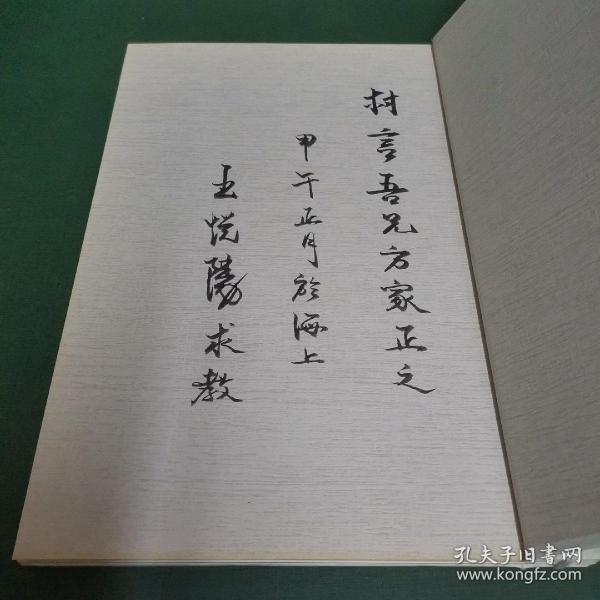 村言吾兄方家正之
甲午正月於海上
王悦陽求教
孔夫子旧书网
www.kongfz.com